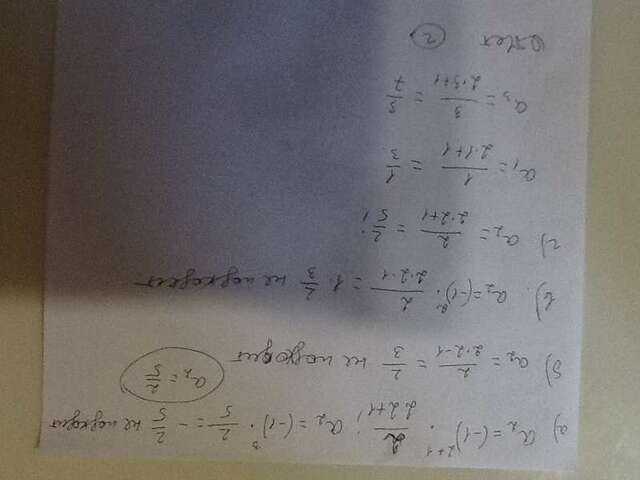 а) a₂ = (-1)²⁺¹ · 2/(2·2+1); a₂ = (-1)³ · 2/5 = - 2/5 не подходит
a₂ = 2/5
б) a₂ = 2/(2·2-1) = 2/3 не подходит
в). a₂ = (-1)² · 2/(2·2-1) = 1 · 2/3 не подходит
г) a₂ = 2/(2·2+1) = 2/5;
a₁ = 1/(2·1+1) = 1/3
a₃ = 3/(2·3+1) = 3/7
Ответ 2